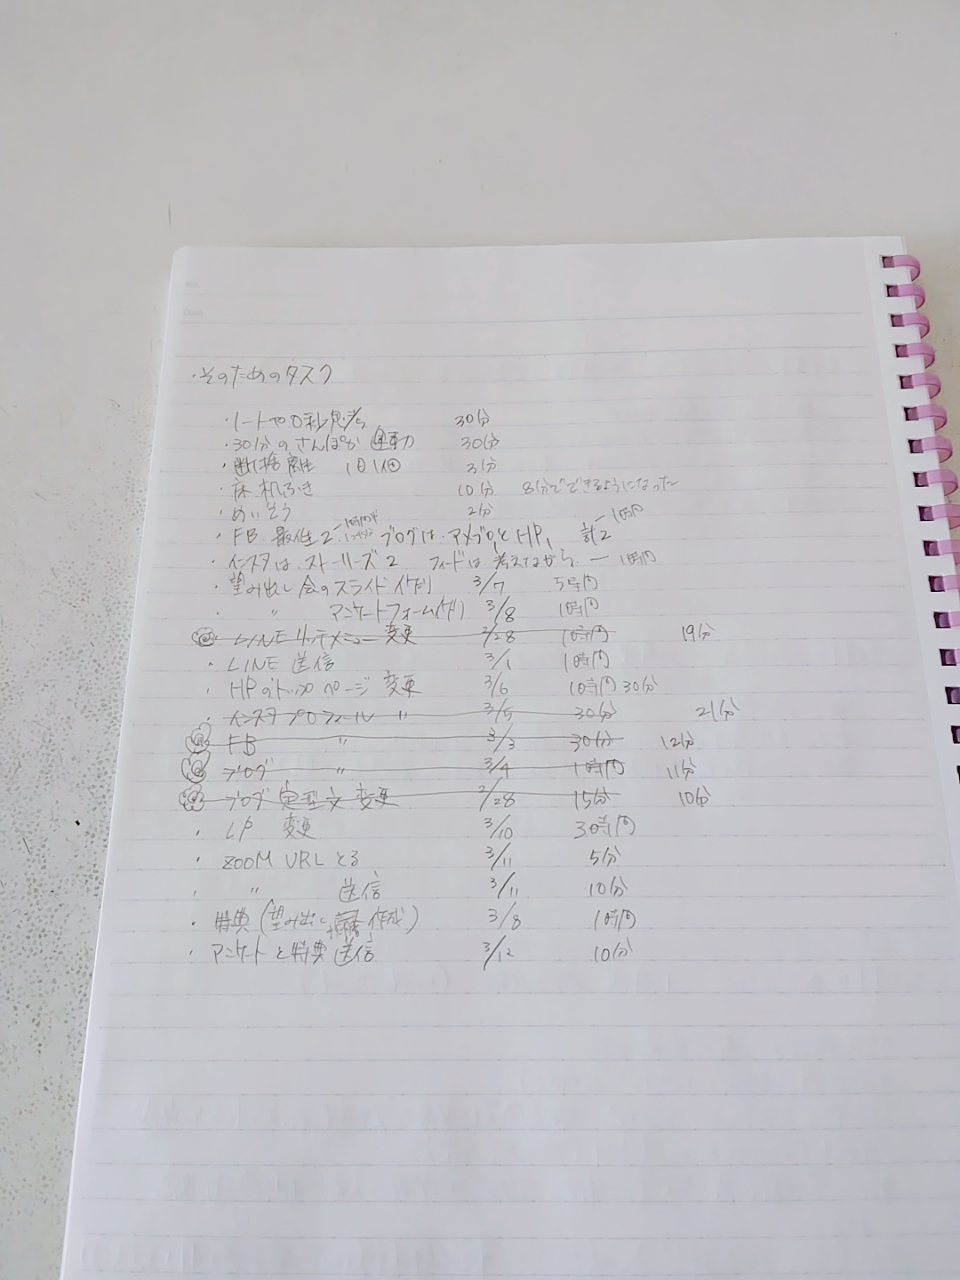 ・そのためのタスク
・ノートや0秒思考 30分
・30分のさんぽか運動 30分
・断捨離 1日1個 3分
・床 机ふき 10分 8分でできるようになった
・めいそう 2分
・FB 最低2 ブログは アメブロ1とHP1 計2 ー1時間
・インスタは ストーリーズ2 フィードは考えながら ー 1時間
・望み出し会のスライド作り 3/7 5時間
・ 〃 アンケートフォーム作り 3/8 1時間
LINEリッチメニュー変更 2/28 1時間 19分
・LINE 送信 3/1 1時間
・HPのトップページ 変更 3/6 1時間30分
・インスタプロフィール 〃 3/5 30分 21分
FB 〃 3/3 30分 12分
ブログ 〃 3/4 1時間 11分
ブログ 定型文 変更 2/28 15分 10分
・LP 変更 3/10 3時間
・ZOOM URLとる 3/11 5分
・ 〃 送信 3/11 10分
・特典(望み出し 作成) 3/8 1時間
・アンケートと特典送信 3/12 10分